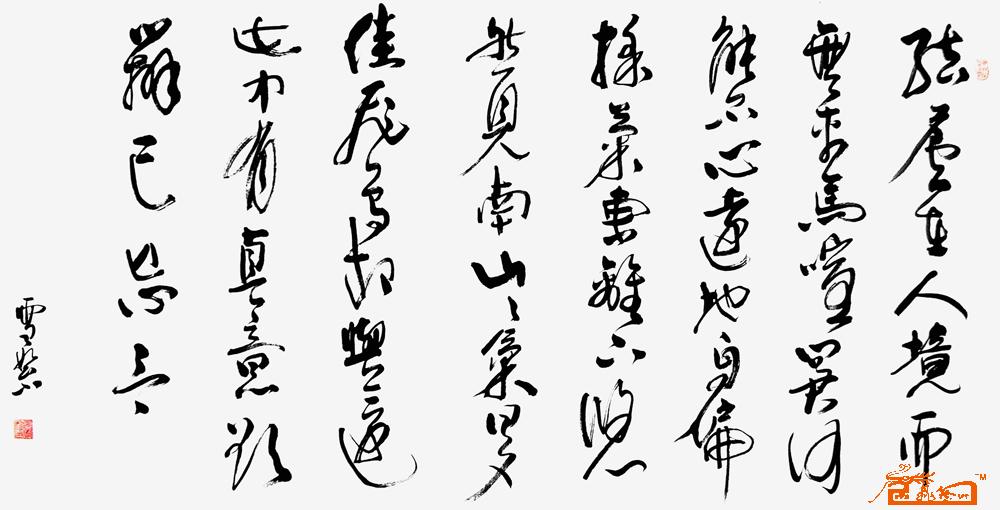 結廬在人境而
無車馬喧問君何
能尔心遠地自偏
採菊東籬下悠
然見南山〻氣日夕
佳飛鳥相與還
此中有真意欲
辯已忘言
雪